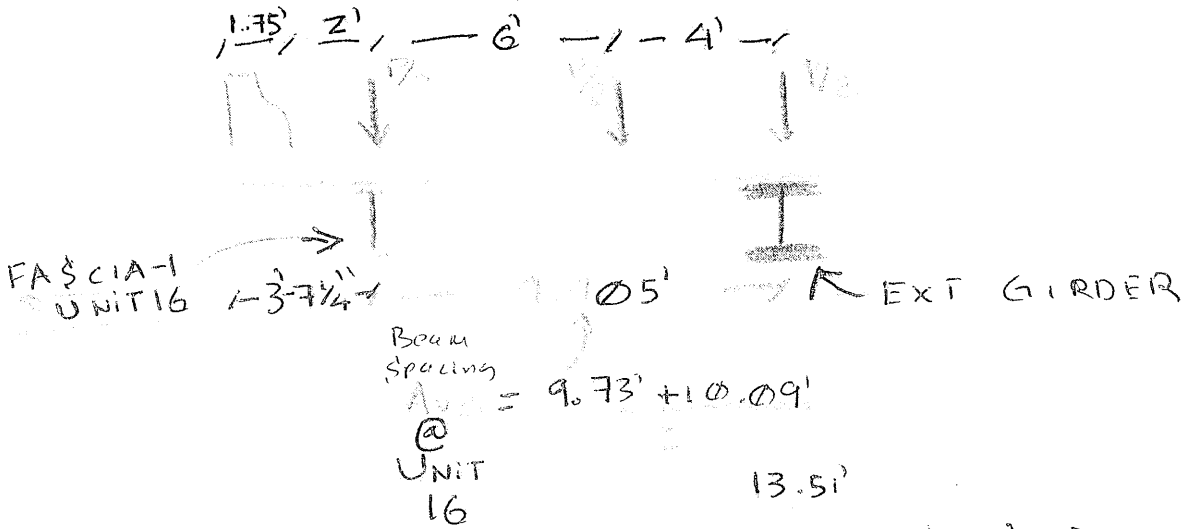 1.75' 2' 6' 4'
FASCIA-1
UNIT 16 3'-7 1/4" Ø5' EXT GIRDER
Beam
Spacing
= 9.73' + 10.09'
@
UNIT
16
13.51'